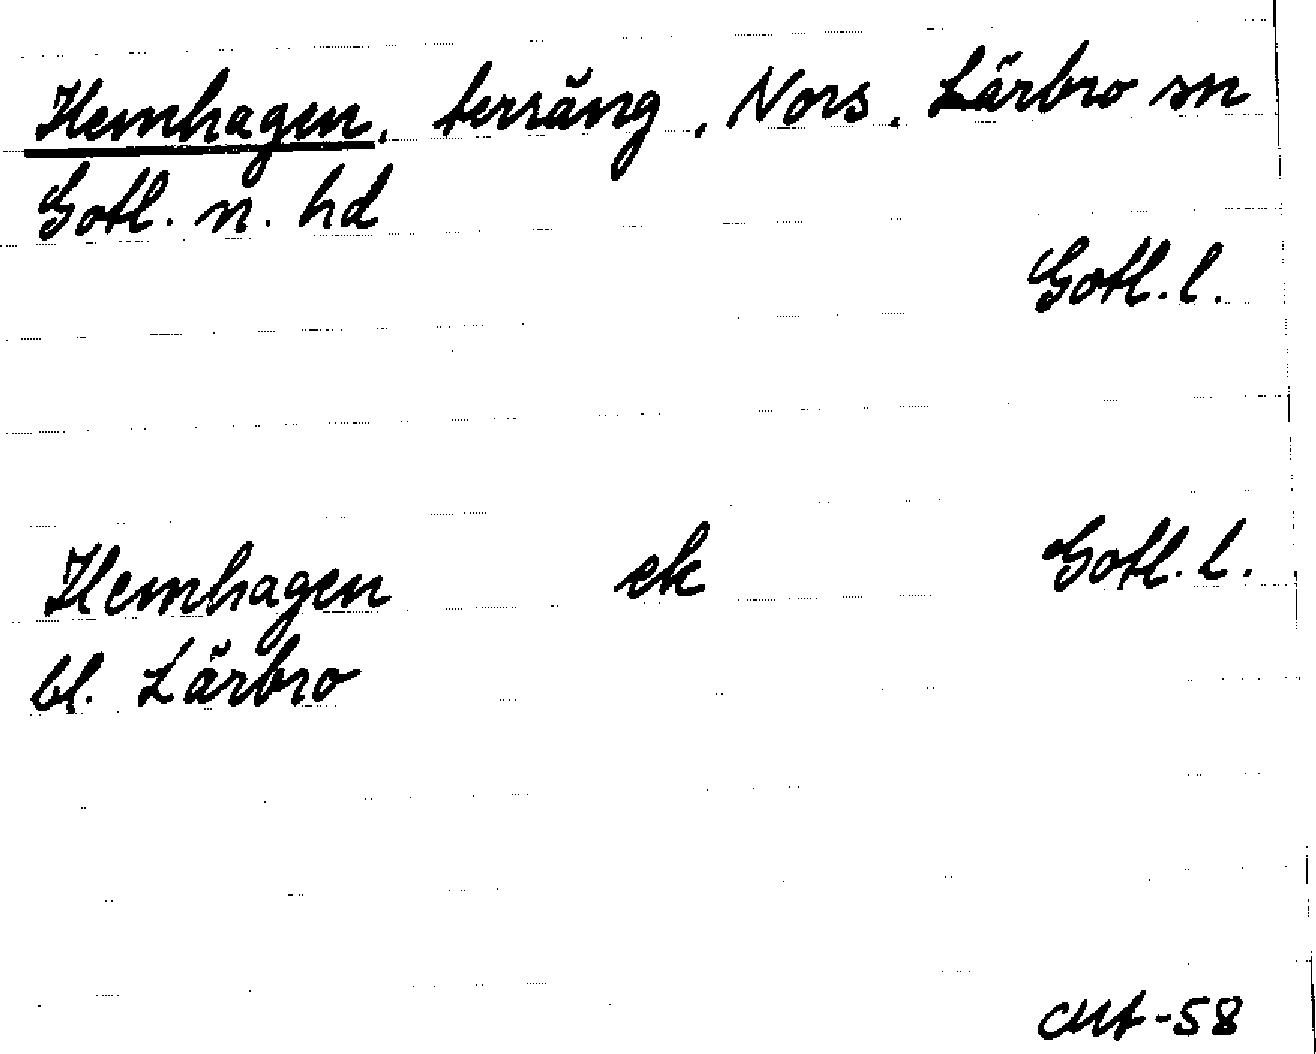 Hemhagen, terräng, Nors, Lärbro sn
Gotl. n. hd
Gotl. l.
Hemhagen ek Gotl. l.
bl. Lärbro
-58